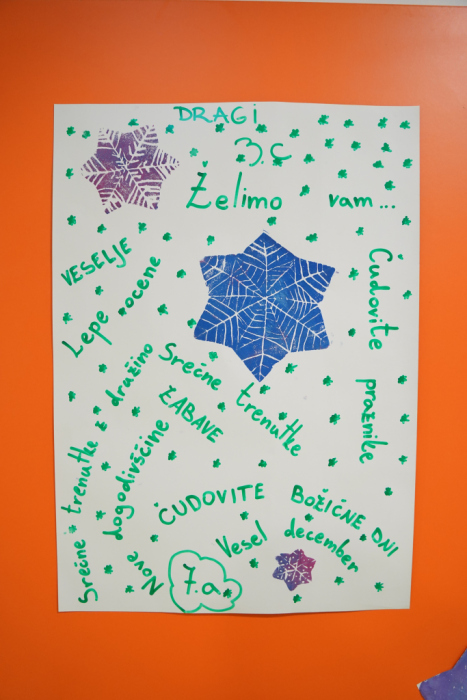 DRAGI
3.C
Želimo vam...
VESELJE
Lepe ocene
Čudovite praznike
Srečne trenutke
ZABAVE
Srečne trenutke z družino
Nove dogodivščine
ČUDOVITE BOŽIČNE DNI
Vesel december
7.a